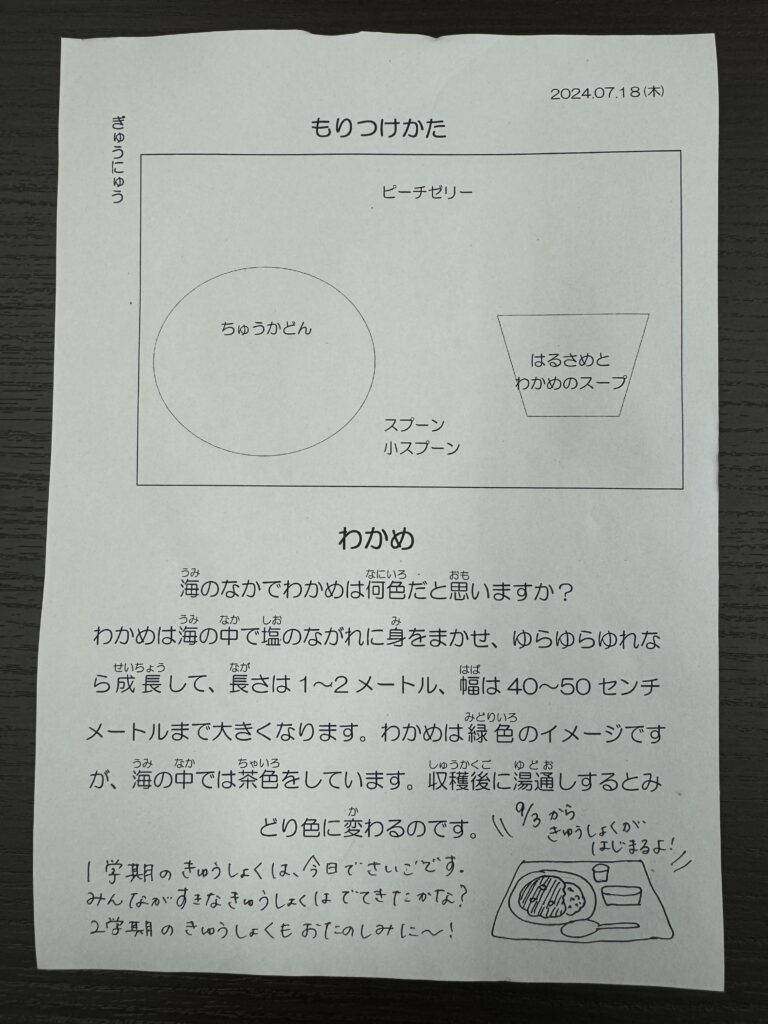 2024.07.18(木)
もりつけかた
ぎゅうにゅう
ピーチゼリー
ちゅうかどん
はるさめと
わかめのスープ
スプーン
小スプーン
わかめ
海のなかでわかめは何色だと思いますか？
わかめは海の中で塩のながれに身をまかせ、ゆらゆらゆれな
ら成長して、長さは1～2メートル、幅は40～50センチ
メートルまで大きくなります。わかめは緑色のイメージです
が、海の中では茶色をしています。収穫後に湯通しするとみ
どり色に変わるのです。
9/3から
きゅうしょくが
はじまるよ!
1学期のきゅうしょくは、今日でさいごです.
みんながすきなきゅうしょくはでてきたかな?
2学期のきゅうしょくもおたのしみに〜!